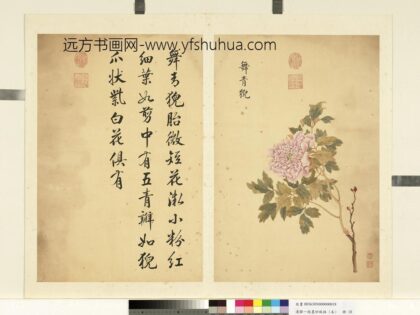 远方书画网- www.yfshuhua.com
舞青猊
舞青猊胎微短花小粉紅
細葉如剪中有五青瓣如猊
爪狀紫白花俱有